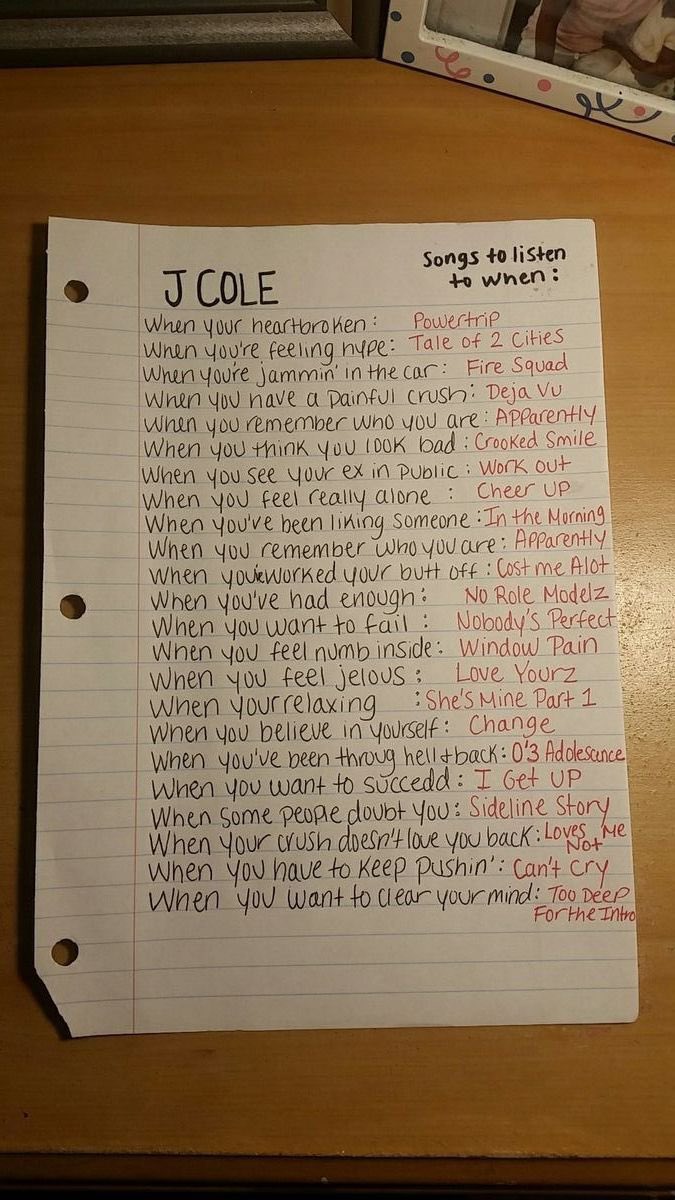 J COLE
Songs to listen
to when:
When your heartbroken: Powertrip
When you're feeling hype: Tale of 2 Cities
When you're jammin' in the car: Fire Squad
When you have a painful crush: Deja Vu
When you remember who you are: Apparently
When you think you look bad: Crooked Smile
When you see your ex in public: Work out
When you feel really alone: Cheer UP
When you've been liking someone: In the Morning
When you remember who you are: Apparently
When you've worked your butt off: Cost me Alot
When you've had enough: No Role Modelz
When you want to fail: Nobody's Perfect
When you feel numb inside: Window Pain
When you feel jelous: Love Yourz
When your relaxing: She's Mine Part 1
When you believe in yourself: Change
When you've been throug hell + back: 0'3 Adolescence
When you want to succedd: I Get UP
When some people doubt you: Sideline Story
When your crush doesn't love you back: Loves Me
Not
When you have to keep pushin': Can't Cry
When you want to clear your mind: Too Deep
For the Intro